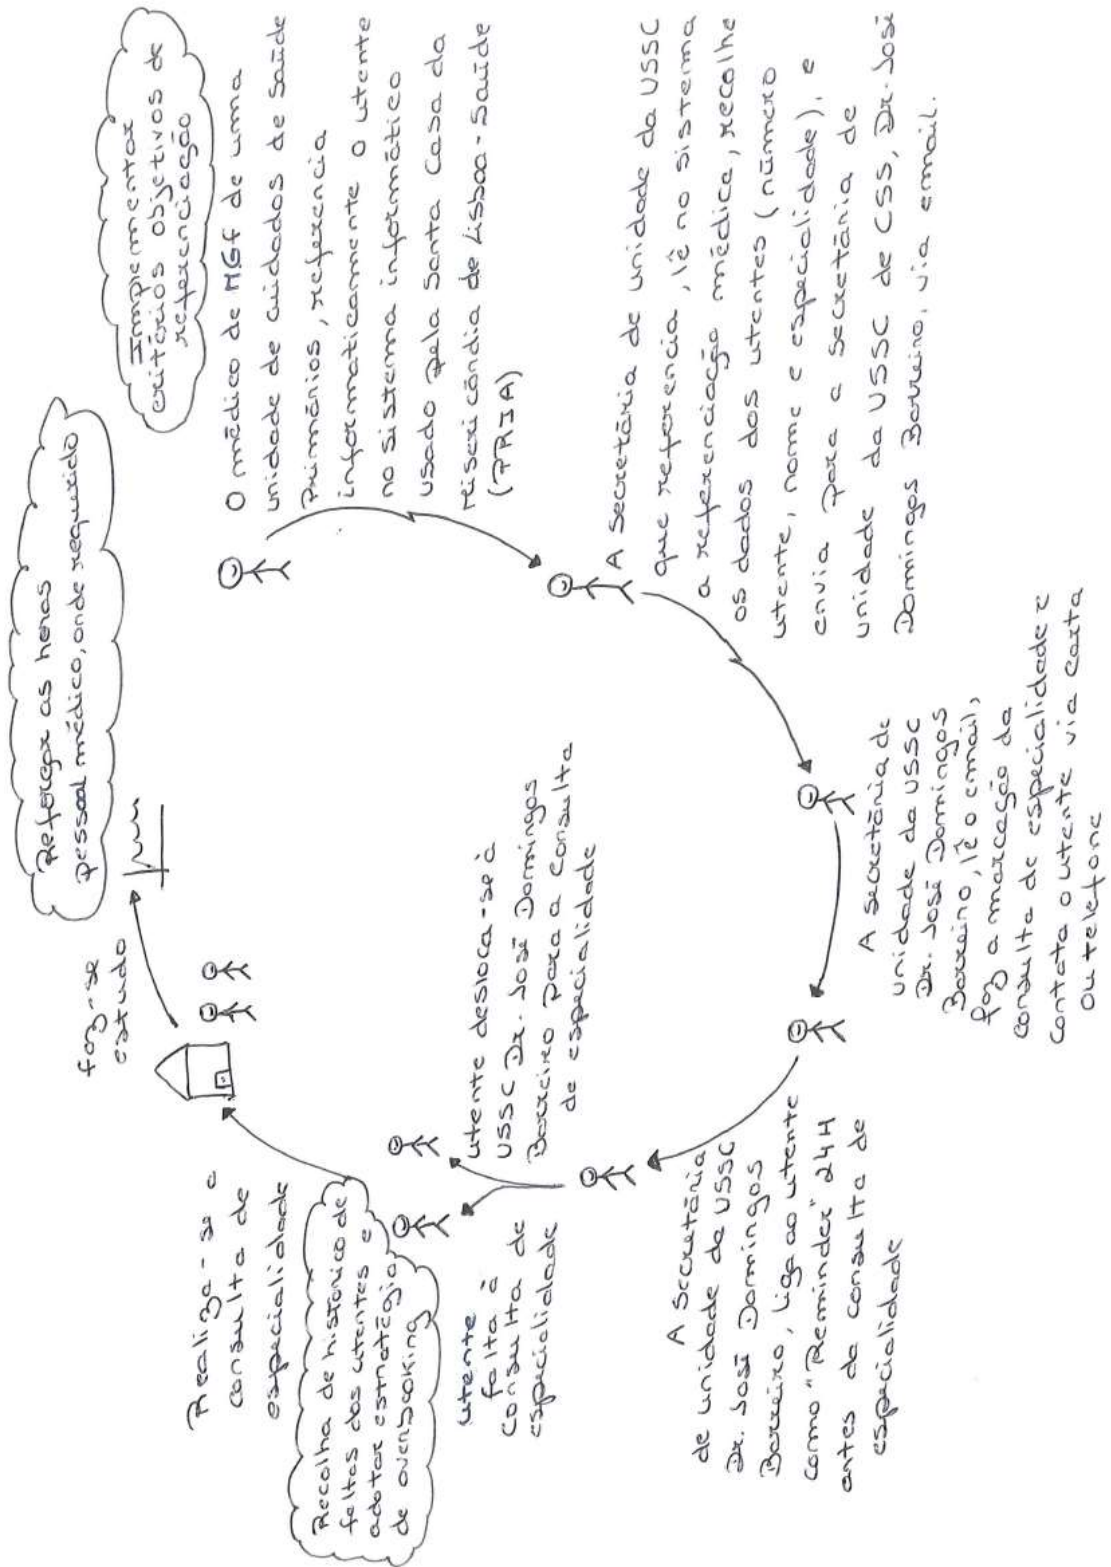 Reforçar as horas
pessoal médico, onde requerido
Implementar
critérios objetivos de
referenciação
O médico de MGF de uma
unidade de cuidados de saúde
Primários, referencia
informaticamente o utente
no sistema informático
usado pela Santa Casa da
Misericórdia de Lisboa - Saúde
(PRIA)
A Secretária de unidade da USSC
que referencia, lê no sistema
a referenciação médica, recolhe
os dados dos utentes (número
utente, nome e especialidade), e
envia para a secretária de
unidade da USSC de CSS, Dr. José
Domingos Barreiro, via email.
A secretária de
unidade da USSC
Dr. José Domingos
Barreiro, lê o email,
faz a marcação da
consulta de especialidade e
contata o utente via carta
ou telefone
A Secretária
de unidade da USSC
Dr. José Domingos
Barreiro, liga ao utente
como "Reminder" 24H
antes da consulta de
especialidade
utente desloca-se à
USSC Dr. José Domingos
Barreiro para a consulta
de especialidade
utente
falta à
consulta de
especialidade
Recolha de histórico de
faltas dos utentes e
adotar estratégia
de overbooking
Realiza-se a
consulta de
especialidade
faz-se
estudo